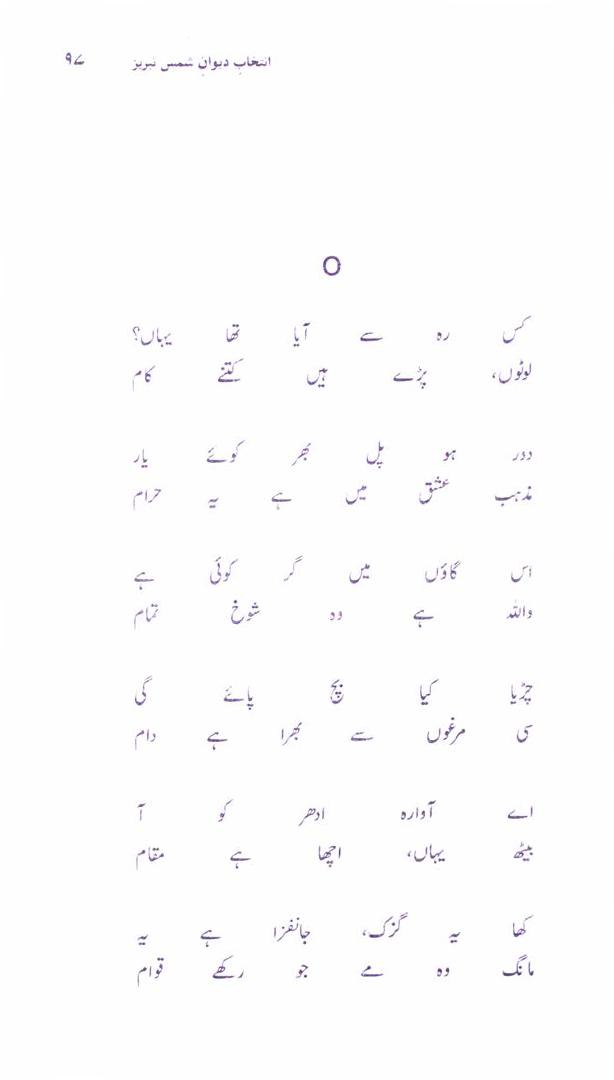 انتخابِ دیوانِ شمس تبریز ۹۷
O
کس رہ سے آیا تھا یہاں؟
لوٹوں، پڑے ہیں کتنے کام
دور ہو پل بھر کوئے یار
مذہب عشق میں ہے یہ حرام
اس گاؤں میں گر کوئی ہے
واللہ ہے وہ شوخ تمام
چڑیا کیا بچ پائے گی
سی مرغوں سے بھرا ہے دام
اے آوارہ ادھر کو آ
بیٹھ یہاں، اچھا ہے مقام
کھا یہ گزک، جانفزا ہے یہ
مانگ وہ مے جو رکھے قوام